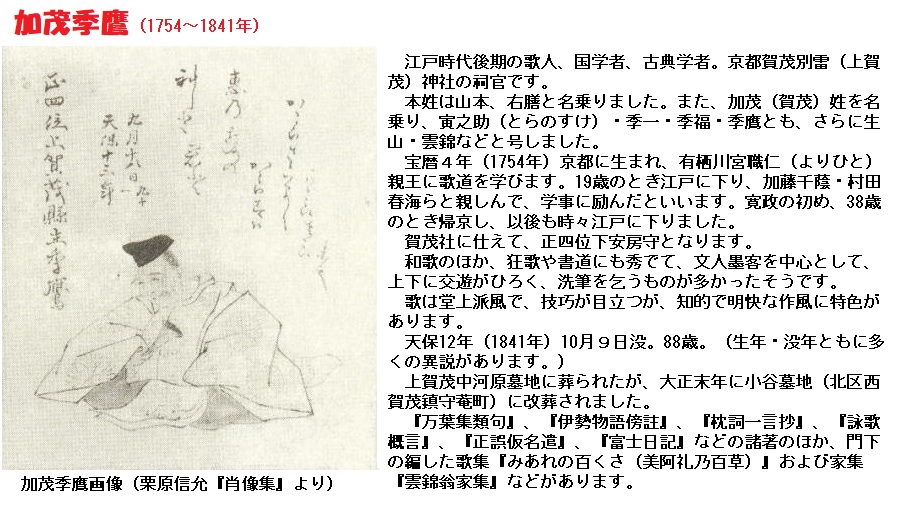 加茂季鷹（1754～1841年）
正四位下賀茂縣主季鷹
江戸時代後期の歌人、国学者、古典学者。京都賀茂別雷（上賀
茂）神社の祠官です。
本姓は山本、右膳と名乗りました。また、加茂（賀茂）姓を名
乗り、寅之助（とらのすけ）・季一・季福・季鷹とも、さらに生
山・雲錦などと号しました。
宝暦４年（1754年）京都に生まれ、有栖川宮職仁（よりひと）
親王に歌道を学びます。19歳のとき江戸に下り、加藤千蔭・村田
春海らと親しんで、学事に励んだといいます。寛政の初め、38歳
のとき帰京し、以後も時々江戸に下りました。
賀茂社に仕えて、正四位下安房守となります。
和歌のほか、狂歌や書道にも秀でて、文人墨客を中心として、
上下に交遊がひろく、洗筆を乞うものが多かったそうです。
歌は堂上派風で、技巧が目立つが、知的で明快な作風に特色が
あります。
天保12年（1841年）10月９日没。88歳。（生年・没年ともに多
くの異説があります。）
上賀茂中河原墓地に葬られたが、大正末年に小谷墓地（北区西
賀茂鎮守菴町）に改葬されました。
『万葉集類句』、『伊勢物語傍註』、『枕詞一言抄』、『詠歌
概言』、『正誤仮名遣』、『富士日記』などの諸著のほか、門下
の編した歌集『みあれの百くさ（美阿礼乃百草）』および家集
『雲錦翁家集』などがあります。
加茂季鷹画像（栗原信允『肖像集』より）